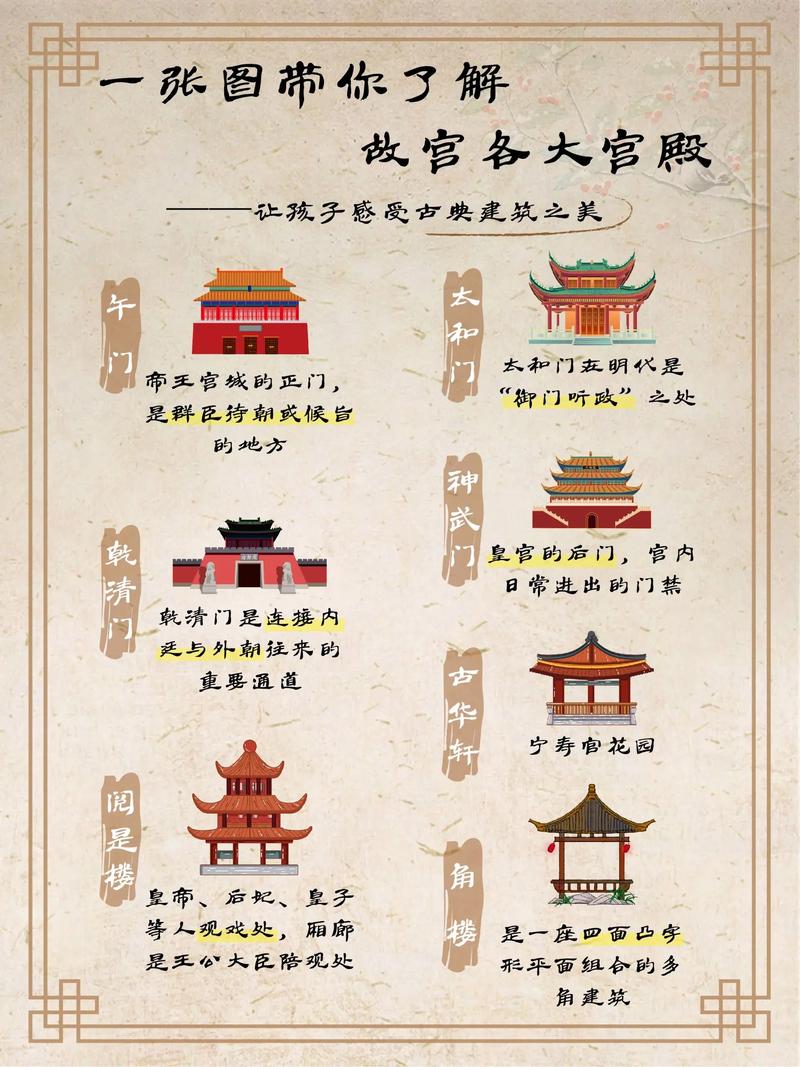 一张图带你了解
故宫各大宫殿
——让孩子感受古典建筑之美
午门
帝王宫城的正门，
是群臣待朝或候旨
的地方
太和门
太和门在明代是
“御门听政”之处
神武门
皇宫的后门，宫内
日常进出的门禁
乾清门
乾清门是连接内
廷与外朝往来的
重要通道
古华轩
宁寿宫花园
阅是楼
皇帝、后妃、皇子
等人观戏处，厢廊
是王公大臣陪观处
角楼
是一座四面凸字
形平面组合的多
角建筑